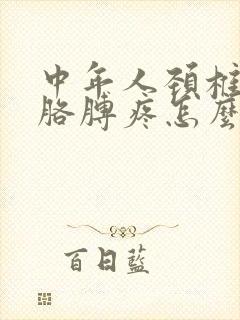 中年人颈椎
胳膊疼怎麼
百日藍